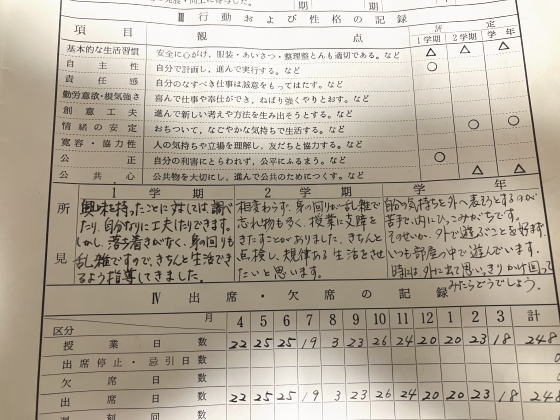 Ⅲ 行動および性格の記録
項目 観点 評定
1学期 2学期 学年
基本的な生活習慣 安全に心がけ、服装・あいさつ・整理整とんも適切である。など △ △ △
自主性 自分で計画し、進んで実行する。など ○
責任感 自分のなすべき仕事は誠意をもってはたす。など
勤労意欲・根気強さ 喜んで仕事や奉仕ができ、ねばり強くやりとおす。など
創意工夫 進んで新しい考えや方法を生み出そうとする。など
情緒の安定 おちついて、なごやかな気持ちで生活する。など ○ ○
寛容・協力性 人の気持ちや立場を理解し、友だちと協力する。など
公正 自分の利害にとらわれず、公平にふるまう。など ○
公共心 公共物を大切にし、進んで公共のためにつくす。など △ △
所見
1学期
興味を持ったことに対しては、調べ
たり、自分なりに工夫したりできます。
しかし、落ち着きがなく、身の回りも
乱雑ですので、きちんと生活でき
るよう指導してきました。
2学期
相変わらず、身の回りが乱雑で
忘れ物も多く、授業に支障を
きたすことがありました。きちんと
点検し、規律ある生活をさせ
たいと思います。
学年
自分の気持ちを外へ表そうとするのが
苦手で、内にひっこみがちです。
そのせいか、外で遊ぶことを好まず
いつも部屋の中で遊んでいます。
時には、外に出て思いきりかけ回って
みたらどうでしょう。
Ⅳ 出席・欠席の記録
区分 月 4 5 6 7 9 10 11 12 1 2 3 計
授業日数 22 25 25 19 3 23 26 24 20 20 23 18 248
出席停止・忌引日数 0
欠席日数
出席日数 22 25 25 19 3 23 26 24 20 20 23 18 248
遅刻回数